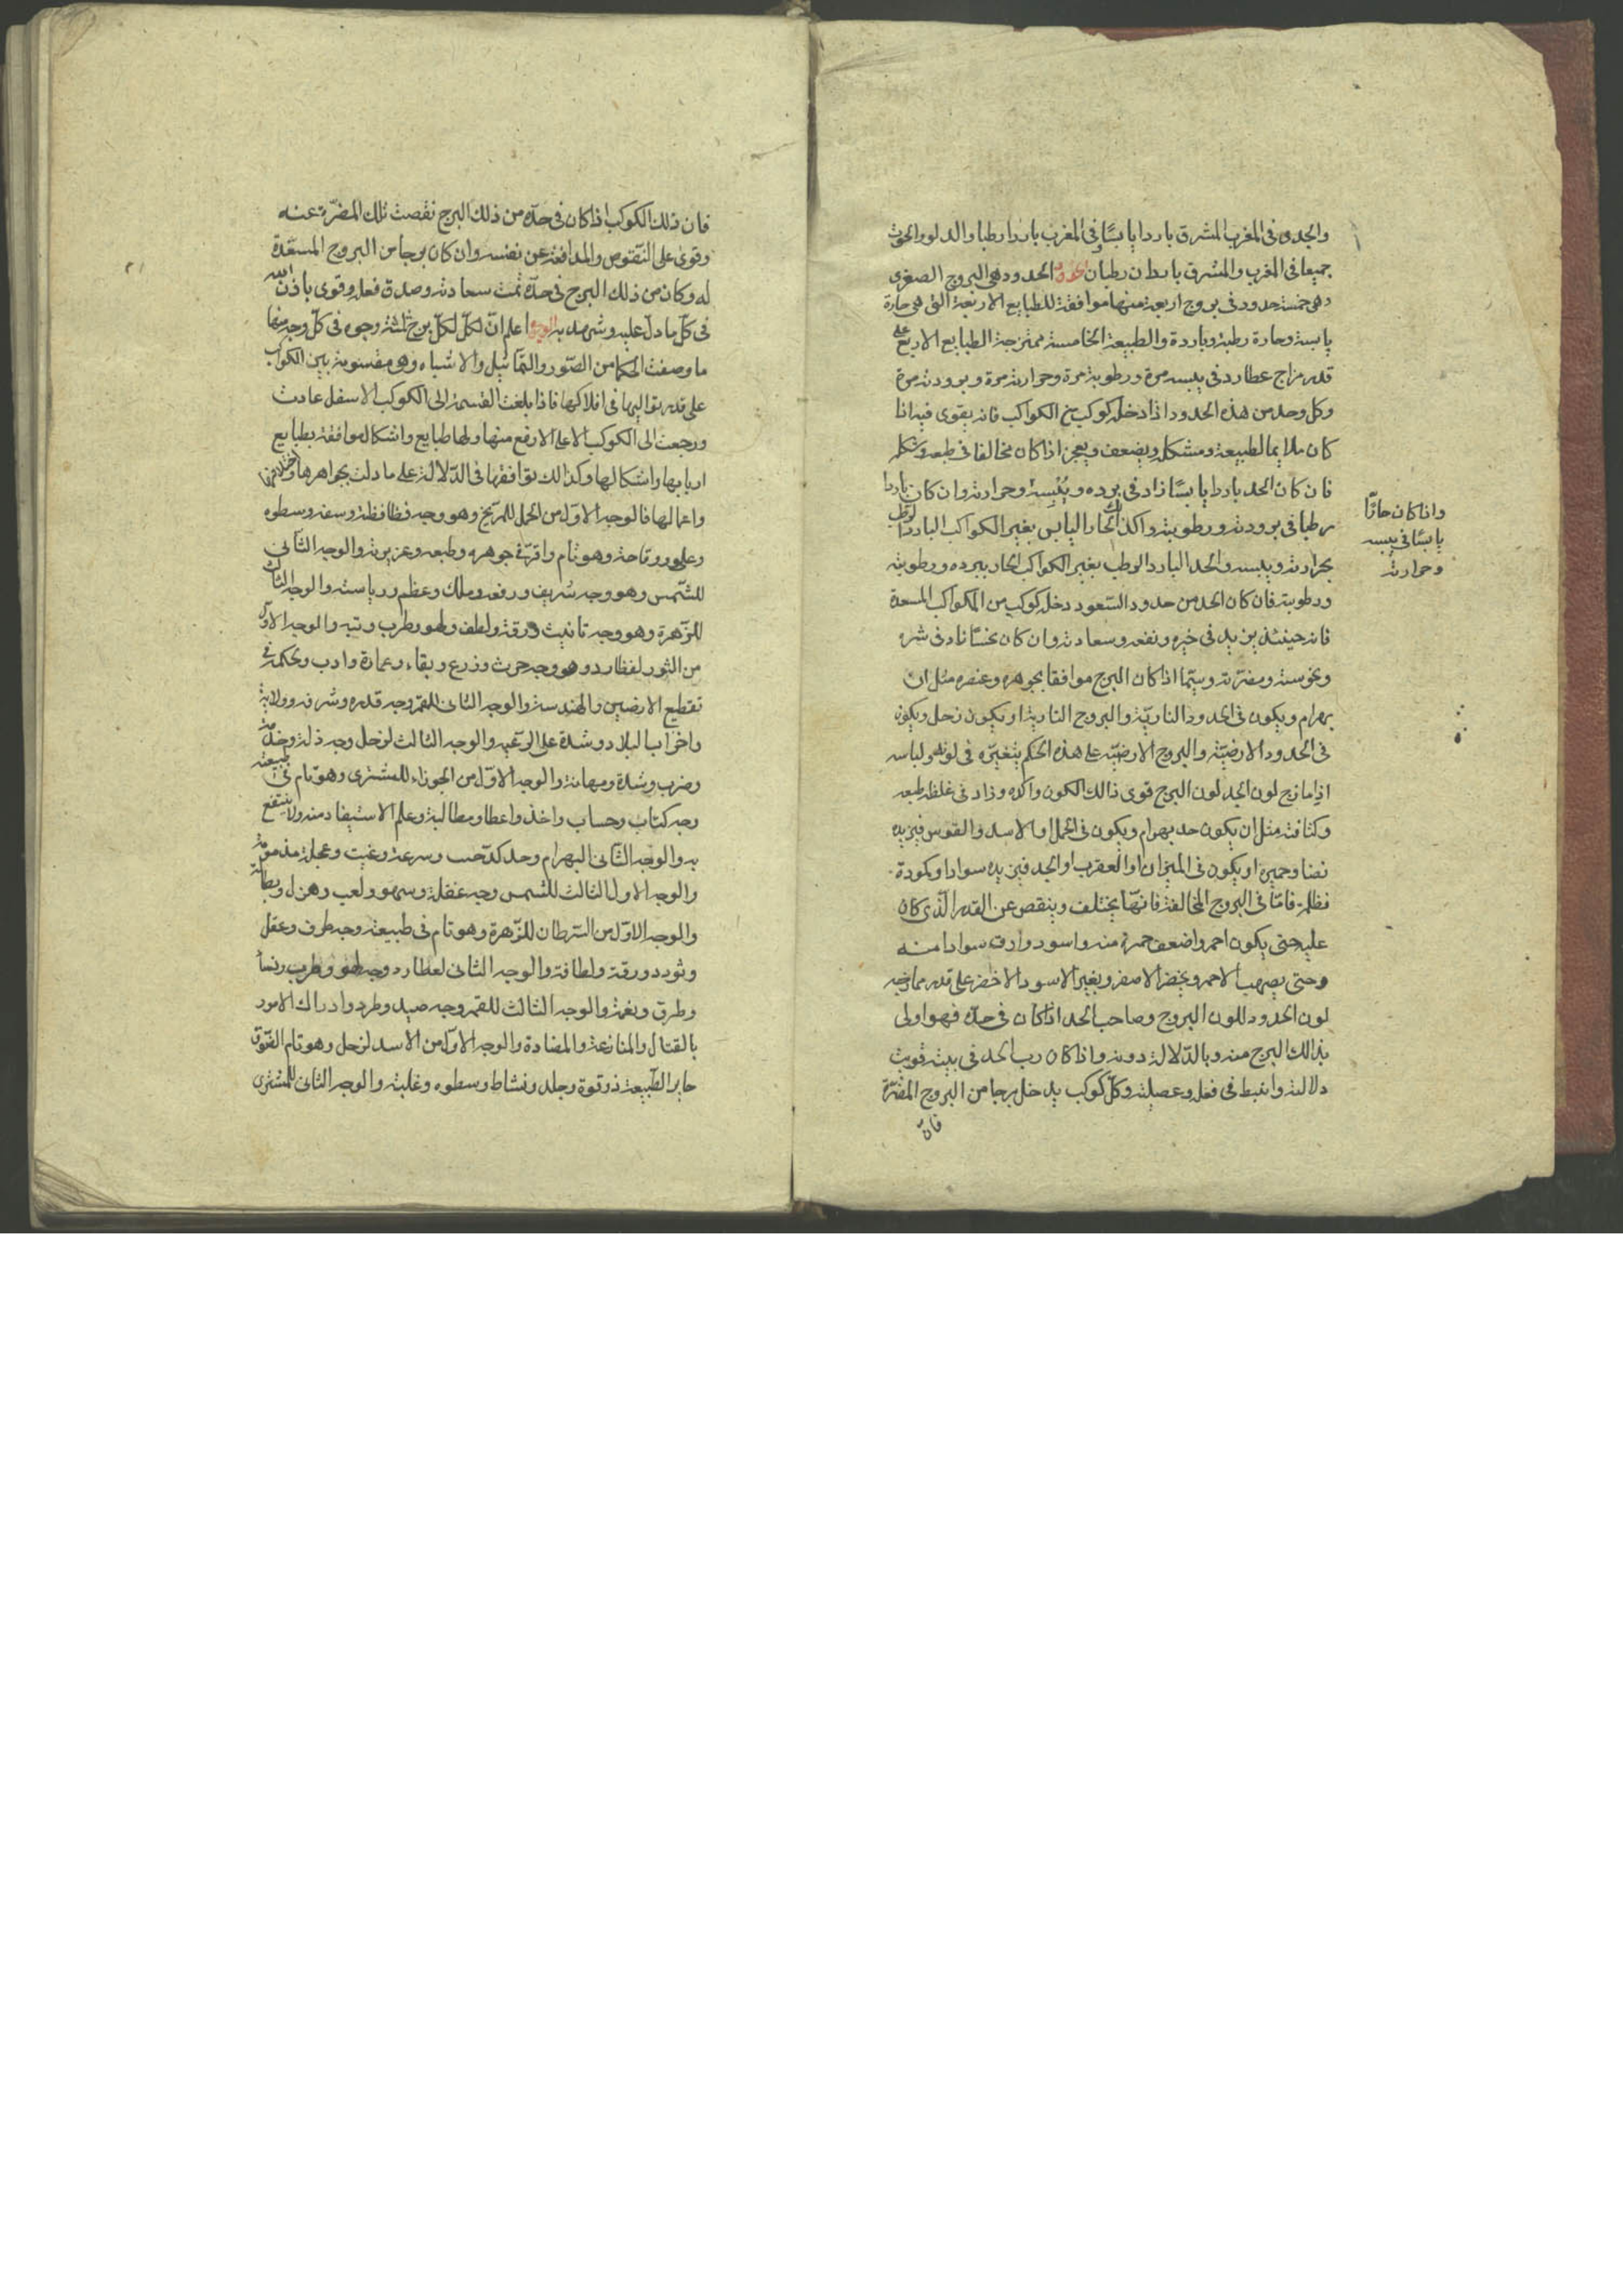 والجدى فى المغرب المشرق باردا يابسًا وفى المغرب باردا رطبا والدلو والحوت
جميعا فى المغرب والمشرق باردان رطبان الحدود الحدود هى البروج الصغرى
وهى خمسة حدود فى بروج اربعة منها موافقة للطبايع الاربعة التى هى حارة
يابسة وحارة رطبة وباردة والطبيعة الخامسة ممتزجة الطبايع الاربع على
قدر مزاج عطارد فى يبسه مرة ورطوبته مرة وحرارته مرة وبرودته مرة
وكل وحد من هذه الحدود اذا دخله كوكب من الكواكب فانه يقوى فيه اذا
كان ملايما لطبيعته ومشكله ويضعف ويعجز اذا كان مخالفا فى طبعه وشكله
فان كان الحد باردا يابسًا زاد فى برده ويبسه وحرارته وان كان باردا
رطبا فى برودته ورطوبته وكذلك الحار اليابس بغير الكواكب البارد الرطب
بحرارته ويبسه والحد البارد الرطب بغير الكواكب الحار ببرده ورطوبته
ورطوبته فان كان الحد من حدود السّعود دخله كوكب من الكواكب المسعدة
فانه حينئذ يزيد فى خيره ونفعه وسعادته وان كان نحسًا زاد فى شره
ونحوسته ومضرته وسيّما اذا كان البرج موافقا بجوهره وعنصره مثل ان
بهرام ويكون فى الحدود الناريّة والبروج النارية او يكون زحل ويكون
فى الحدود الارضيّة والبروج الارضيّة على هذه الحكم يتغيّره فى لونه ولباسه
اذا مازج لون الحد لون البرج قوى ذالك الكون واكده وزاد فى غلظ طبعه
وكثافته مثل ان يكون حد بهرام ويكون فى الحمل او الاسد والقوس فيزيده
او يكون فى الميزان او العقرب او الجد فيزيده سوادا وكمودة
فظلمة فامّا فى البروج المخالفة فانهّا يختلف وينقص عن القدر الّذى كان
عليه حتى يكون احمر واضعف حمرة منه واسود وارق سوادا منه
وحتى يصهب الاحمر ويخضر الاصفر ويغير الاسود الاخضر على قدر ممازجه
لون الحدود للون البروج وصاحب الحد اذا كان فى حدّه فهو اولى
بذالك البرج منه وبالدّلالة دونه واذا كان رب الحد فى بيته قويت
دلالته وانبط فى فعله وكلّ كوكب يدخل برجا من البروج المضرّة
فانّ
واذا كان حارًّا
يابسًا فى يبسه
وحرارته
فان ذلك الكوكب اذا كان فى حدّه من ذلك البرج نقصت تلك المضرّة عنه
وقوى على والمدافعة عن نفسه وان كان برجا من البروج المسعّدة
له وكان من ذلك البرج فى حدّه تمت سعادته وصدق فعله وقوى باذن الله
فى كلّ ما دلّ عليه وشهد به الوجوه اعلم انّ لكلّ لكلّ برج ثلثة وجوه فى كلّ وجه منها
ما وصفت الحكما من الصّور والتماثيل والاشباه وهى مقسومة بين الكواكب
على قدر تواليها فى افلاكها فاذا بلغت القسمة الى الكوكب الاسفل عادت
ورجعت الى الكوكب الاعلى الارفع منها ولها طبايع واشكال موافقة بطبايع
اربابها واشكالها وكذالك توافقها فى الدّلالة على ما دلت بجواهرها واخلاقها
واعمالها فالوجه الاوّل من الحمل للمريخ وهو وجه فظاظة وسفه وسطوه
وعلو ووقاحة وهو تام واقرّ فى جوهره وطبعه وعزيزته والوجه الثّانى
للشّمس وهو وجه شريف ورفعه وملك وعظم ورياسة والوجه الثالث
للزّهرة وهو وجه تانيث ورقة ولطف ولهو وطرب وتيه والوجه الاوّل
من الثور لعطارد وهو وجه حرث وزرع وبقاء وعمارة وادب وحكمة فى
تقطيع الارضين والهندسة والوجه الثانى للقمر وجه قدره وشرفه وولاية
واخراب البلاد وشدة على الرّعيّة والوجه الثالث لزحل وجه ذلة وخدمة
وضرب وشدة ومهانة والوجه الاوّل من الجوزاء للمشترى وهو تام فى طبيعته
وجه كتاب وحساب واخذ واعطا ومطالبة وعلم الاستيفاد منه ولا ينتفع
به والوجه الثّانى البهرام وسرعة وعجلة مذمومة
والوجه الاول الثالث للشمس وجه غفلة وسهو ولعب وهزل وبطالة
والوجه الاوّل من السّرطان للزّهرة وهو تام فى طبيعته وجه ظرف وعقل
وتودد ورقة ولطافة والوجه الثانى لعطارد وجه لهو وطرب ونسأ
وطرق ونغمة والوجه الثالث للقمر وجه صيد وطرد وادراك الامور
بالقتال والمنازعة والمضادة والوجه الاوّل من الاسد لزحل وهو تام القوّة
جابر الطّبيعة ذو قوة وجلد ونشاط وسطوه وغلبة والوجه الثانى للمشترى